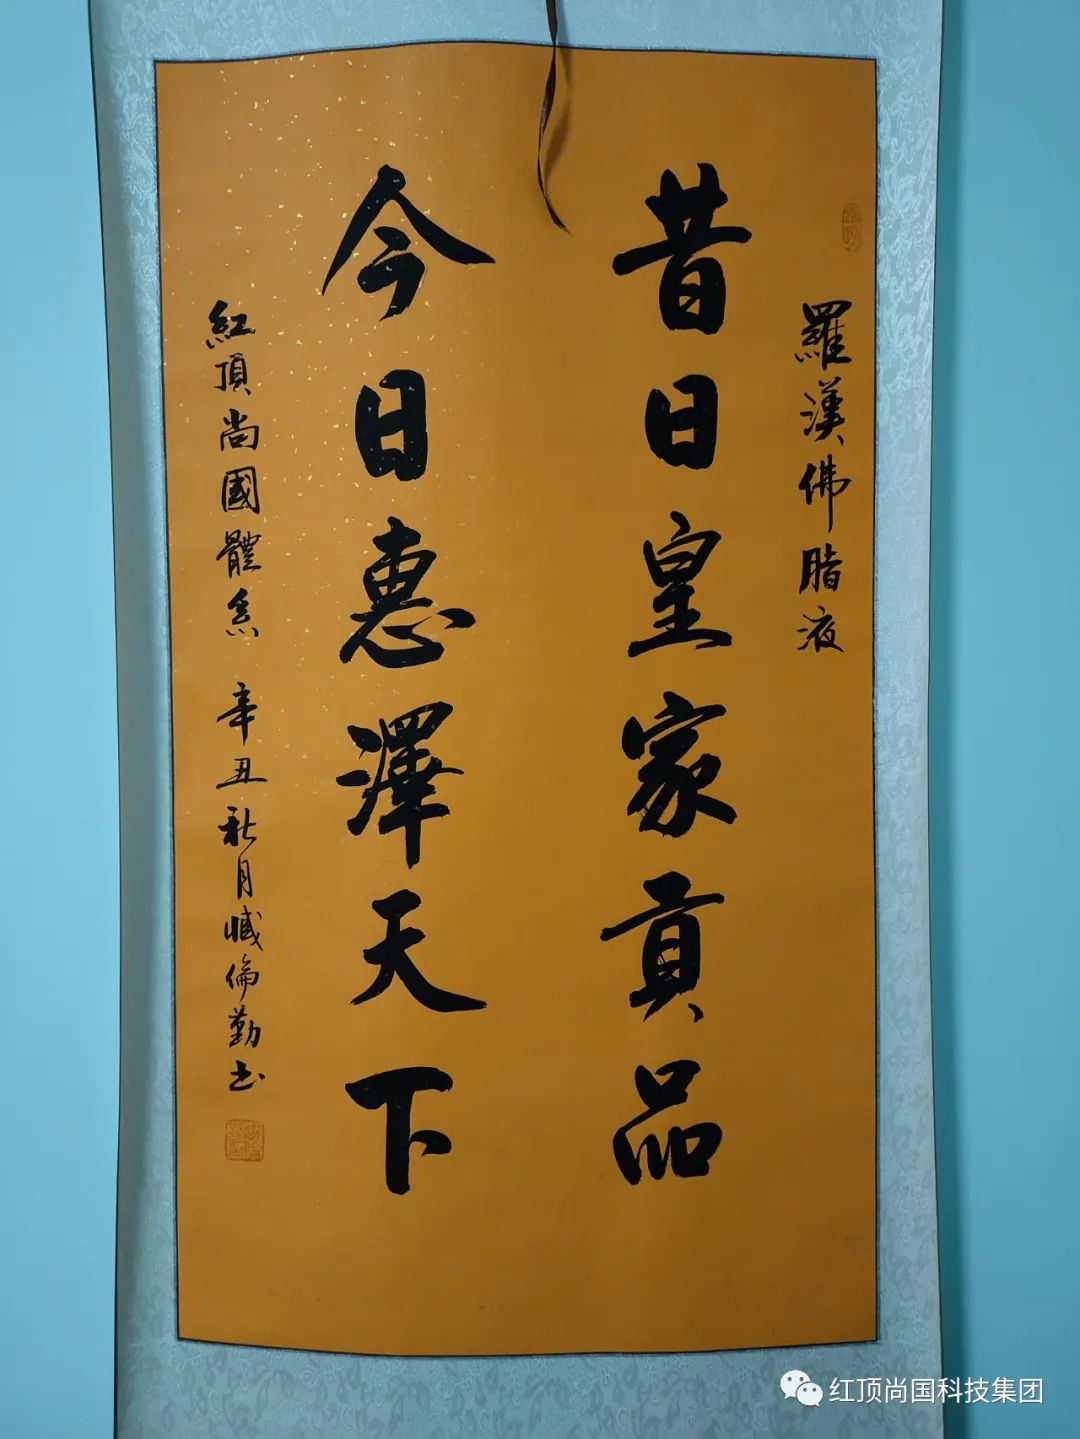 羅漢佛脂液
昔日皇家貢品
今日惠澤天下
紅頂尚國體系 辛丑秋月臧倫勤书
红顶尚国科技集团